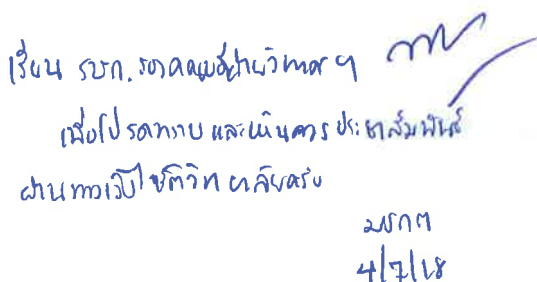 เรียน รบก. รองคณบดีฝ่ายวิเทศ ฯ
เพื่อโปรดทราบ และเห็นควร ประชาสัมพันธ์
ผ่านทางเว็บไซต์วิทยาลัยครับ
มรกต
4/7/68